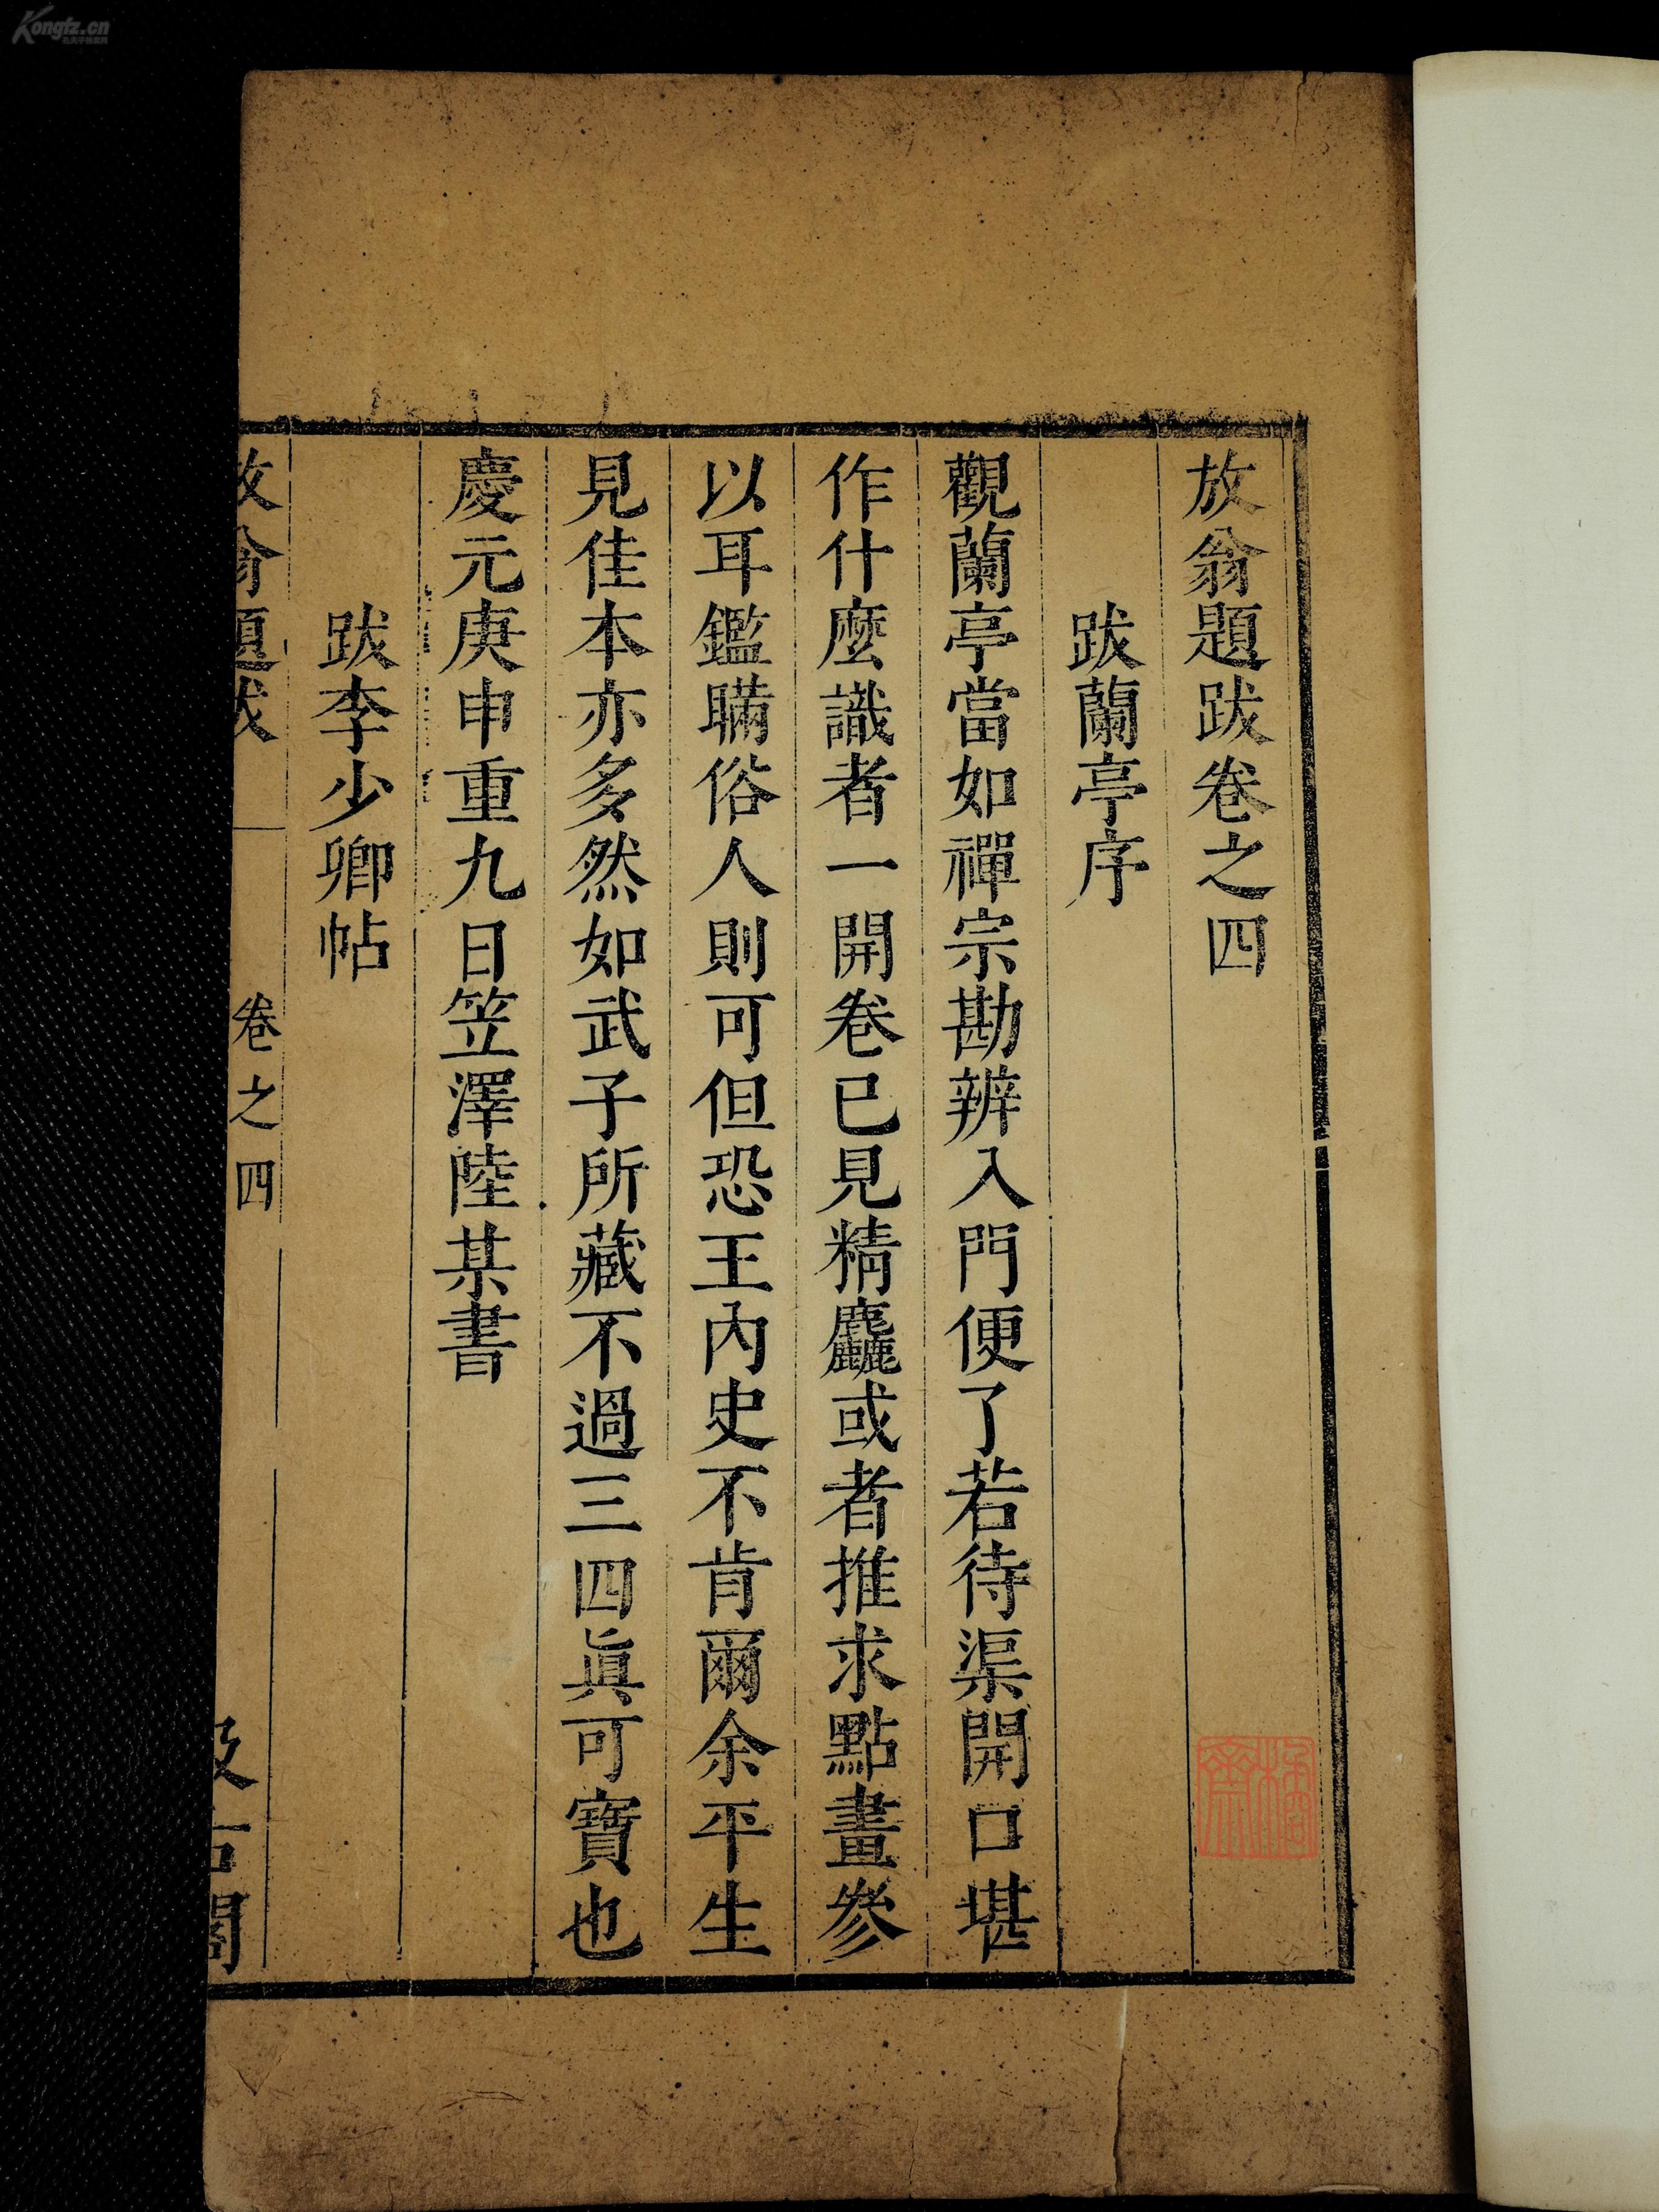 放翁題跋卷之四
跋蘭亭序
觀蘭亭當如禪宗勘辨入門便了若待渠開口堪
作什麼識者一開卷已見精麤或者推求點畫參
以耳鑑瞞俗人則可但恐王內史不肯爾余平生
見佳本亦多然如武子所藏不過三四眞可寶也
慶元庚申重九日笠澤陸某書
跋李少卿帖
放翁題跋
卷之四
汲古閣
Kongfz.cn